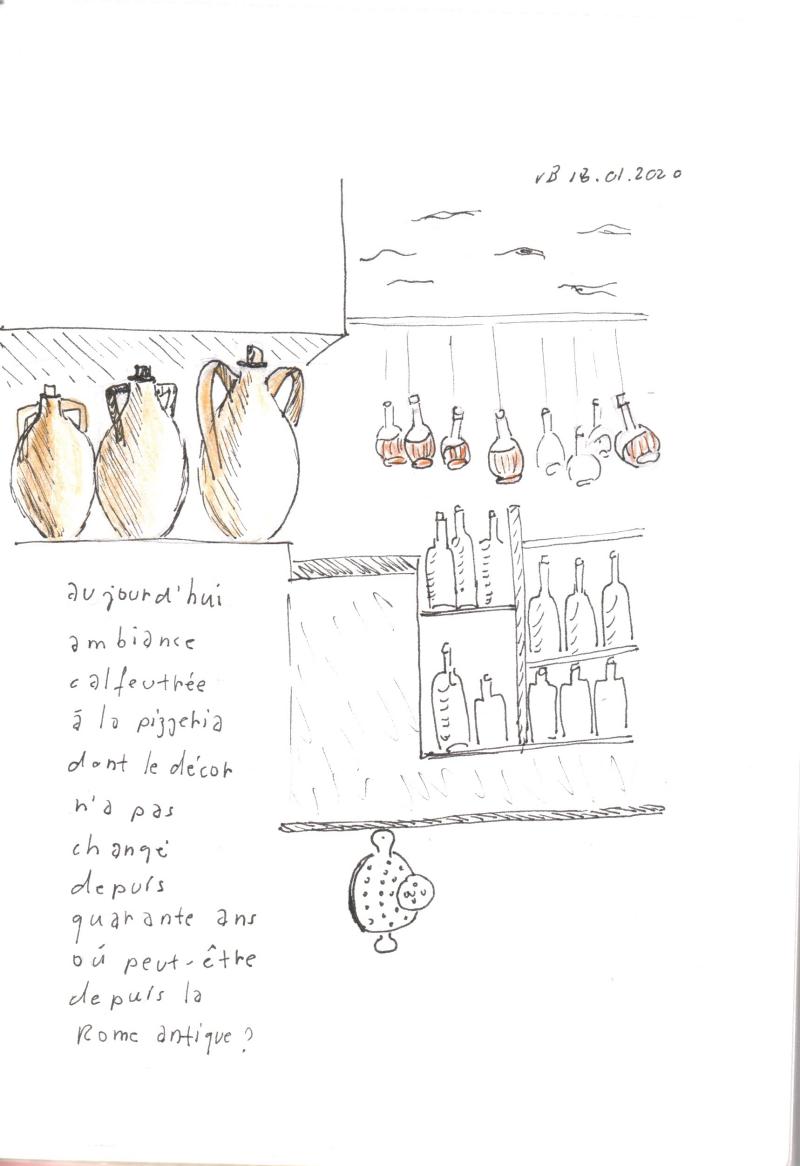 vB 18.01.2020
aujourd'hui
ambiance
calfeutrée
à la pizzeria
dont le décor
n'a pas
changé
depuis
quarante ans
où peut-être
depuis la
Rome antique ?